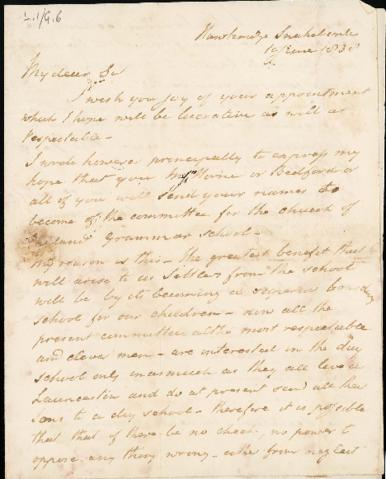 L.1/G.6
Hawkridge Snake Banks
June 183
My dear Sir
I wish you joy of your appointment
which I hope will be lucrative as well as
respectable -
I write however principally to express my
hope that you or Bedford or
all of you will send your names to
become of the committee for the church of
Grammar School -
My reason is this - the greatest benefit that
will arise to us Settlers from the school
will be by its becoming a superior boarding
school for our children - now all the
present committee altho most respectable
and clever men - are interested in the day
school only inasmuch as they all live in
Launceston and do at present send all their
sons to a day school - therefore it is possible
that that if there be no check, no power to
oppose any thing wrong - either from neglect